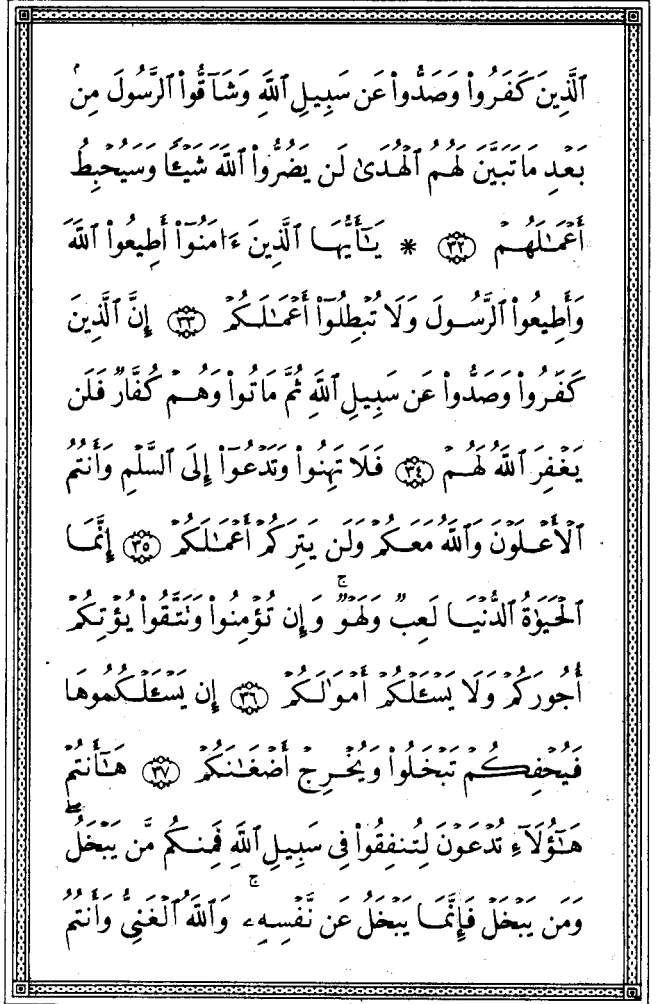 ٱلَّذِينَ كَفَرُوا۟ وَصَدُّوا۟ عَن سَبِيلِ ٱللَّهِ وَشَآقُّوا۟ ٱلرَّسُولَ مِنۢ
بَعۡدِ مَا تَبَيَّنَ لَهُمُ ٱلۡهُدَىٰ لَن يَضُرُّوا۟ ٱللَّهَ شَيۡـًٔا وَسَيُحۡبِطُ
أَعۡمَـٰلَهُمۡ ٣٢ * يَـٰٓأَيُّهَا ٱلَّذِينَ ءَامَنُوٓا۟ أَطِيعُوا۟ ٱللَّهَ
وَأَطِيعُوا۟ ٱلرَّسُولَ وَلَا تُبۡطِلُوٓا۟ أَعۡمَـٰلَكُمۡ ٣٣ إِنَّ ٱلَّذِينَ
كَفَرُوا۟ وَصَدُّوا۟ عَن سَبِيلِ ٱللَّهِ ثُمَّ مَاتُوا۟ وَهُمۡ كُفَّارٌ فَلَن
يَغۡفِرَ ٱللَّهُ لَهُمۡ ٣٤ فَلَا تَهِنُوا۟ وَتَدۡعُوٓا۟ إِلَى ٱلسَّلۡمِ وَأَنتُمُ
ٱلۡأَعۡلَوۡنَ وَٱللَّهُ مَعَكُمۡ وَلَن يَتِرَكُمۡ أَعۡمَـٰلَكُمۡ ٣٥ إِنَّمَا
ٱلۡحَيَوٰةُ ٱلدُّنۡيَا لَعِبٌ وَلَهۡوٌۚ وَإِن تُؤۡمِنُوا۟ وَتَتَّقُوا۟ يُؤۡتِكُمۡ
أُجُورَكُمۡ وَلَا يَسۡـَٔلۡكُمۡ أَمۡوَٰلَكُمۡ ٣٦ إِن يَسۡـَٔلۡكُمُوهَا
فَيُحۡفِكُمۡ تَبۡخَلُوا۟ وَيُخۡرِجۡ أَضۡغَـٰنَكُمۡ ٣٧ هَـٰٓأَنتُمۡ
هَـٰٓؤُلَآءِ تُدۡعَوۡنَ لِتُنفِقُوا۟ فِى سَبِيلِ ٱللَّهِ فَمِنكُم مَّن يَبۡخَلُۖ
وَمَن يَبۡخَلۡ فَإِنَّمَا يَبۡخَلُ عَن نَّفۡسِهِۦۚ وَٱللَّهُ ٱلۡغَنِىُّ وَأَنتُمُ